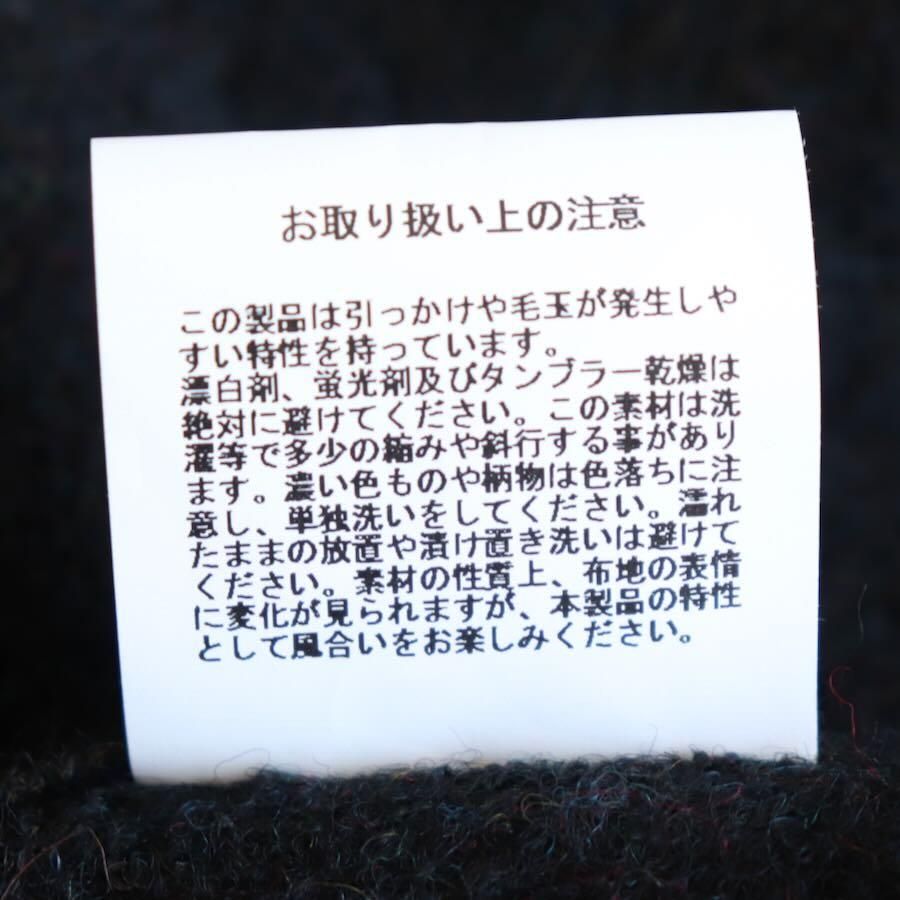 お取り扱い上の注意
この製品は引っかけや毛玉が発生しや
すい特性を持っています。
漂白剤、蛍光剤及びタンブラー乾燥は
絶対に避けてください。この素材は洗
濯等で多少の縮みや斜行する事があり
ます。濃い色ものや柄物は色落ちに注
意し、単独洗いをしてください。濡れ
たままの放置や漬け置き洗いは避けて
ください。素材の性質上、布地の表情
に変化が見られますが、本製品の特性
として風合いをお楽しみください。